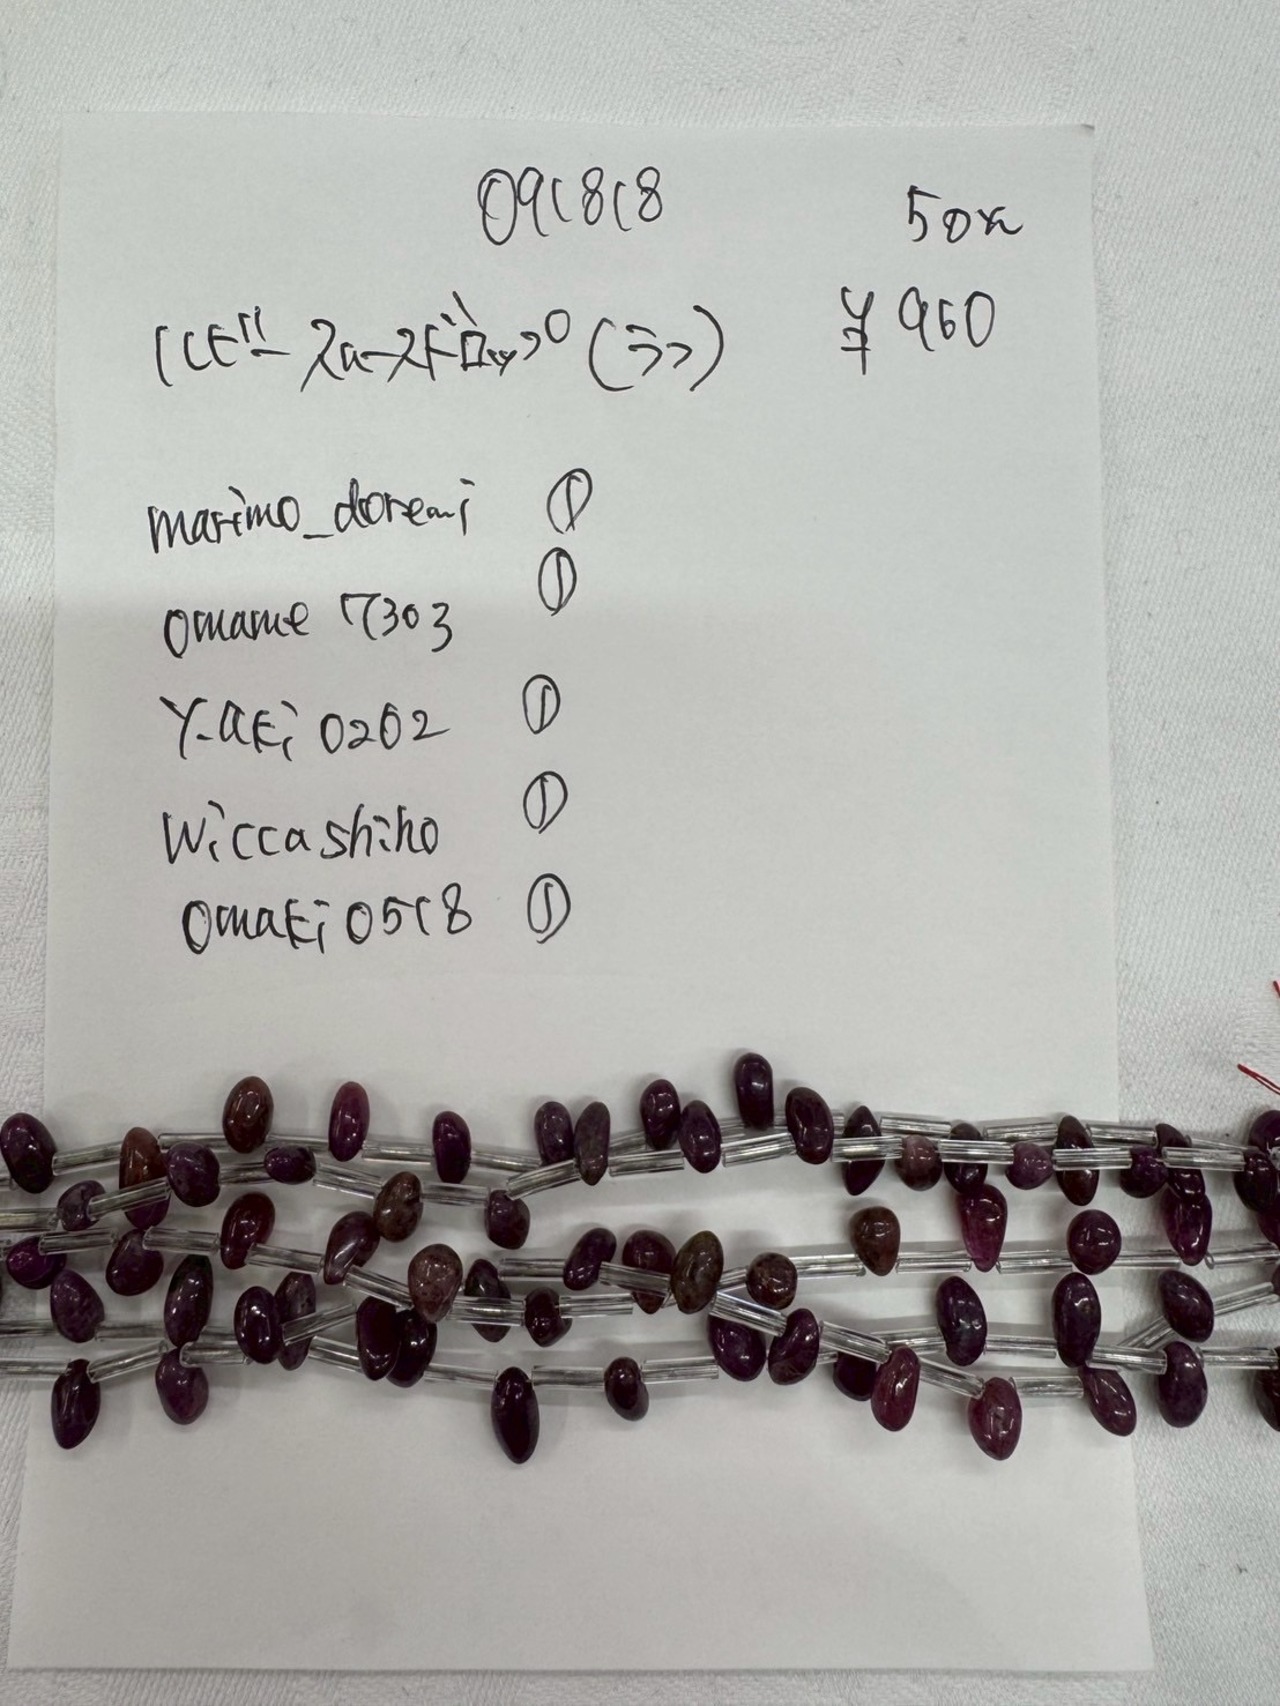 091818
50%
ルビースムースドロップ(ラフ) ¥960
marimo_doremi ①
omame 7303 ①
Y-aki 0202 ①
wiccashiho ①
omaki 0518 ①